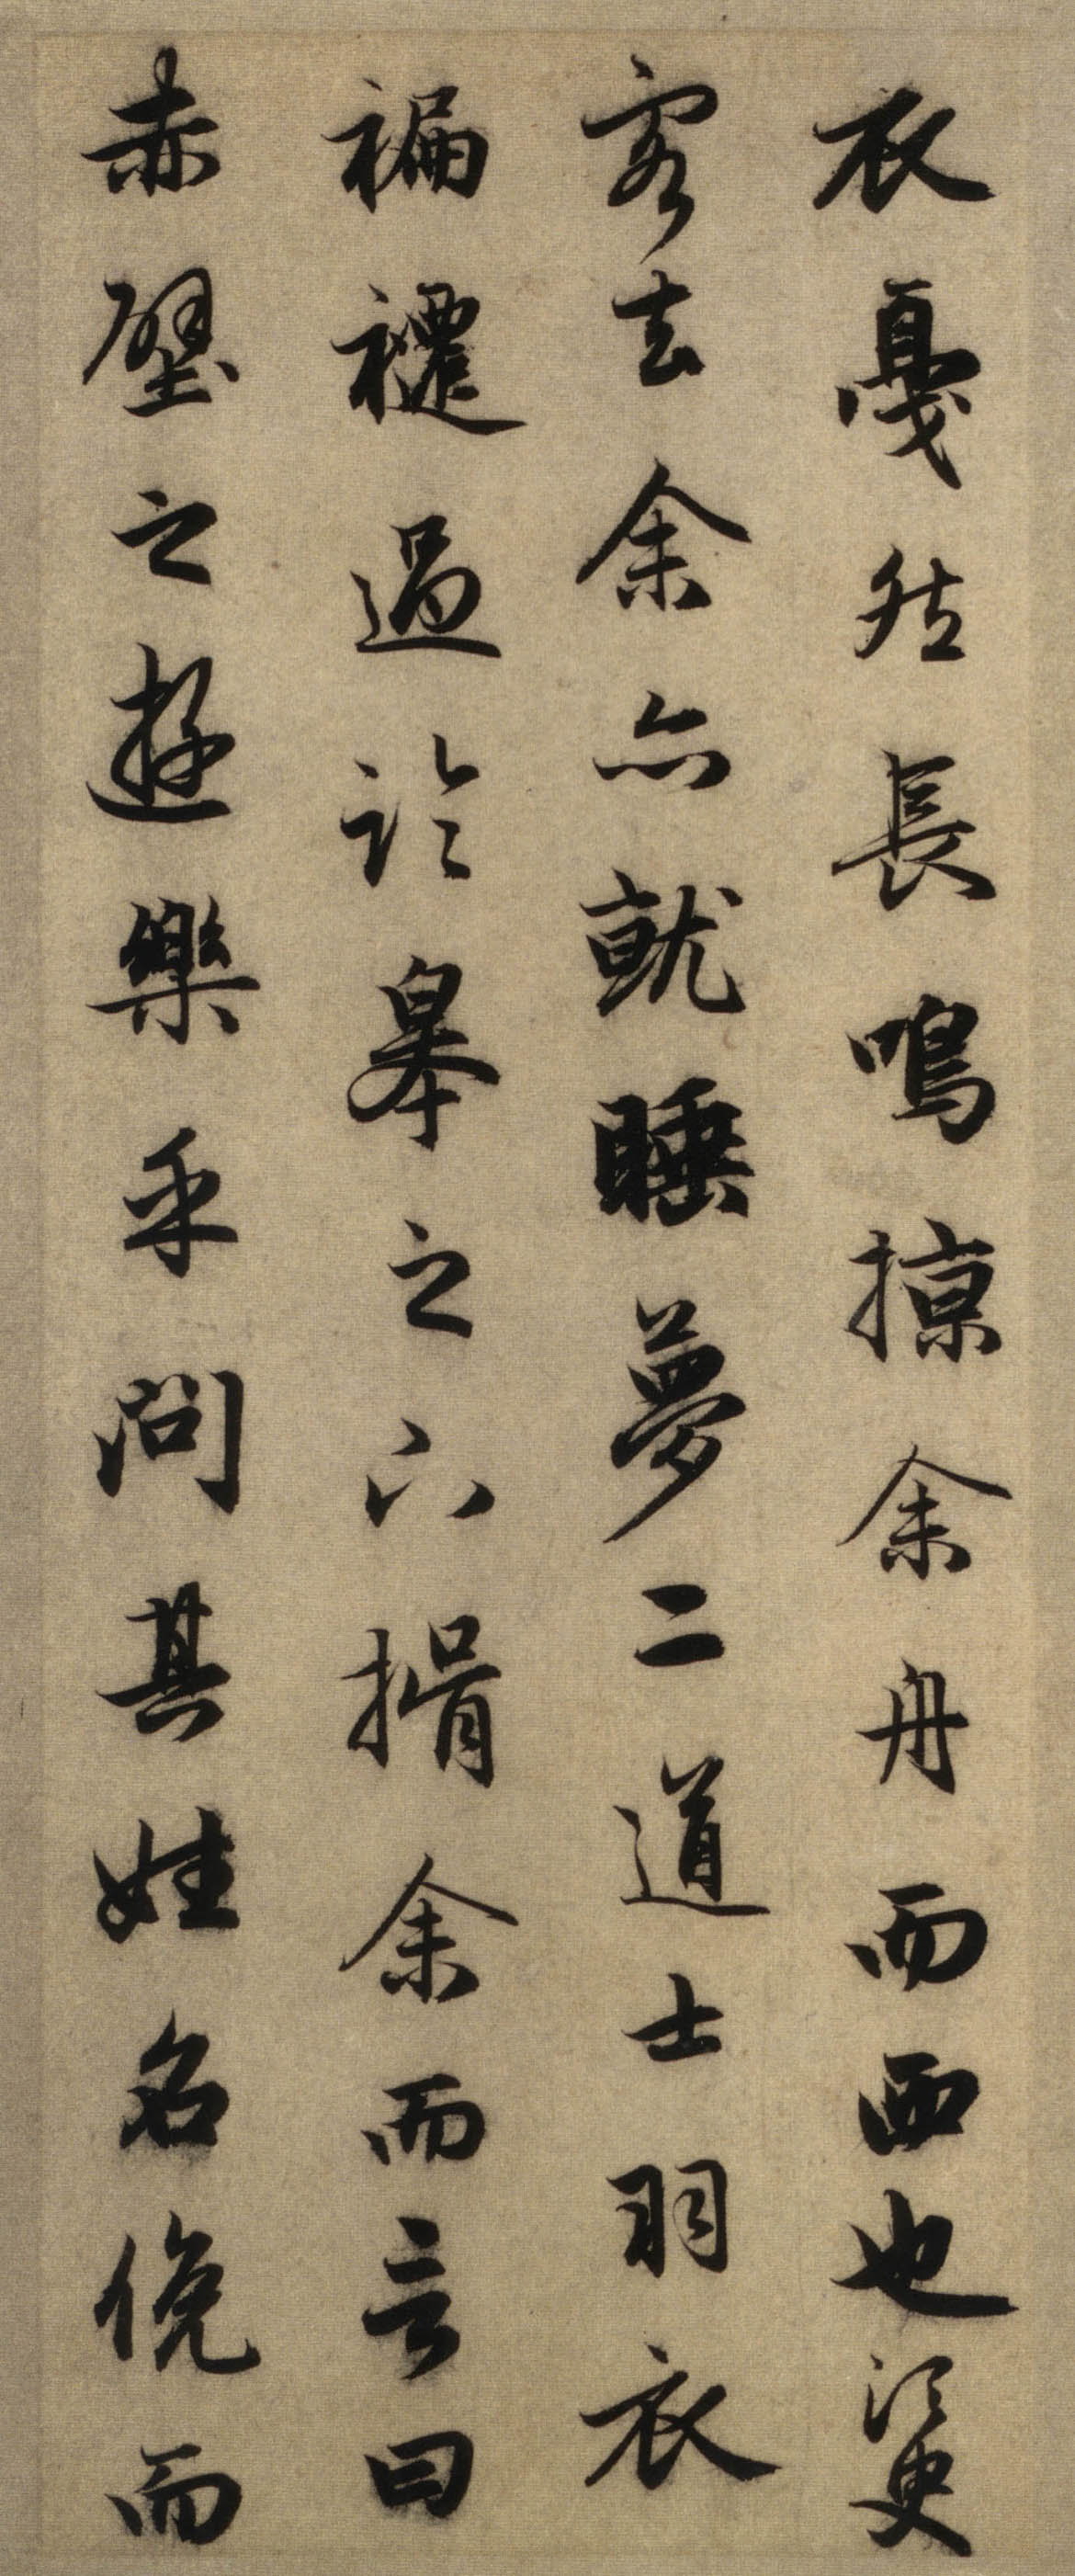 衣戞然長鳴掠余舟而西也須臾
客去余亦就睡夢二道士羽衣
褊褼過臨皋之下揖余而言曰
赤壁之遊樂乎問其姓名俛而